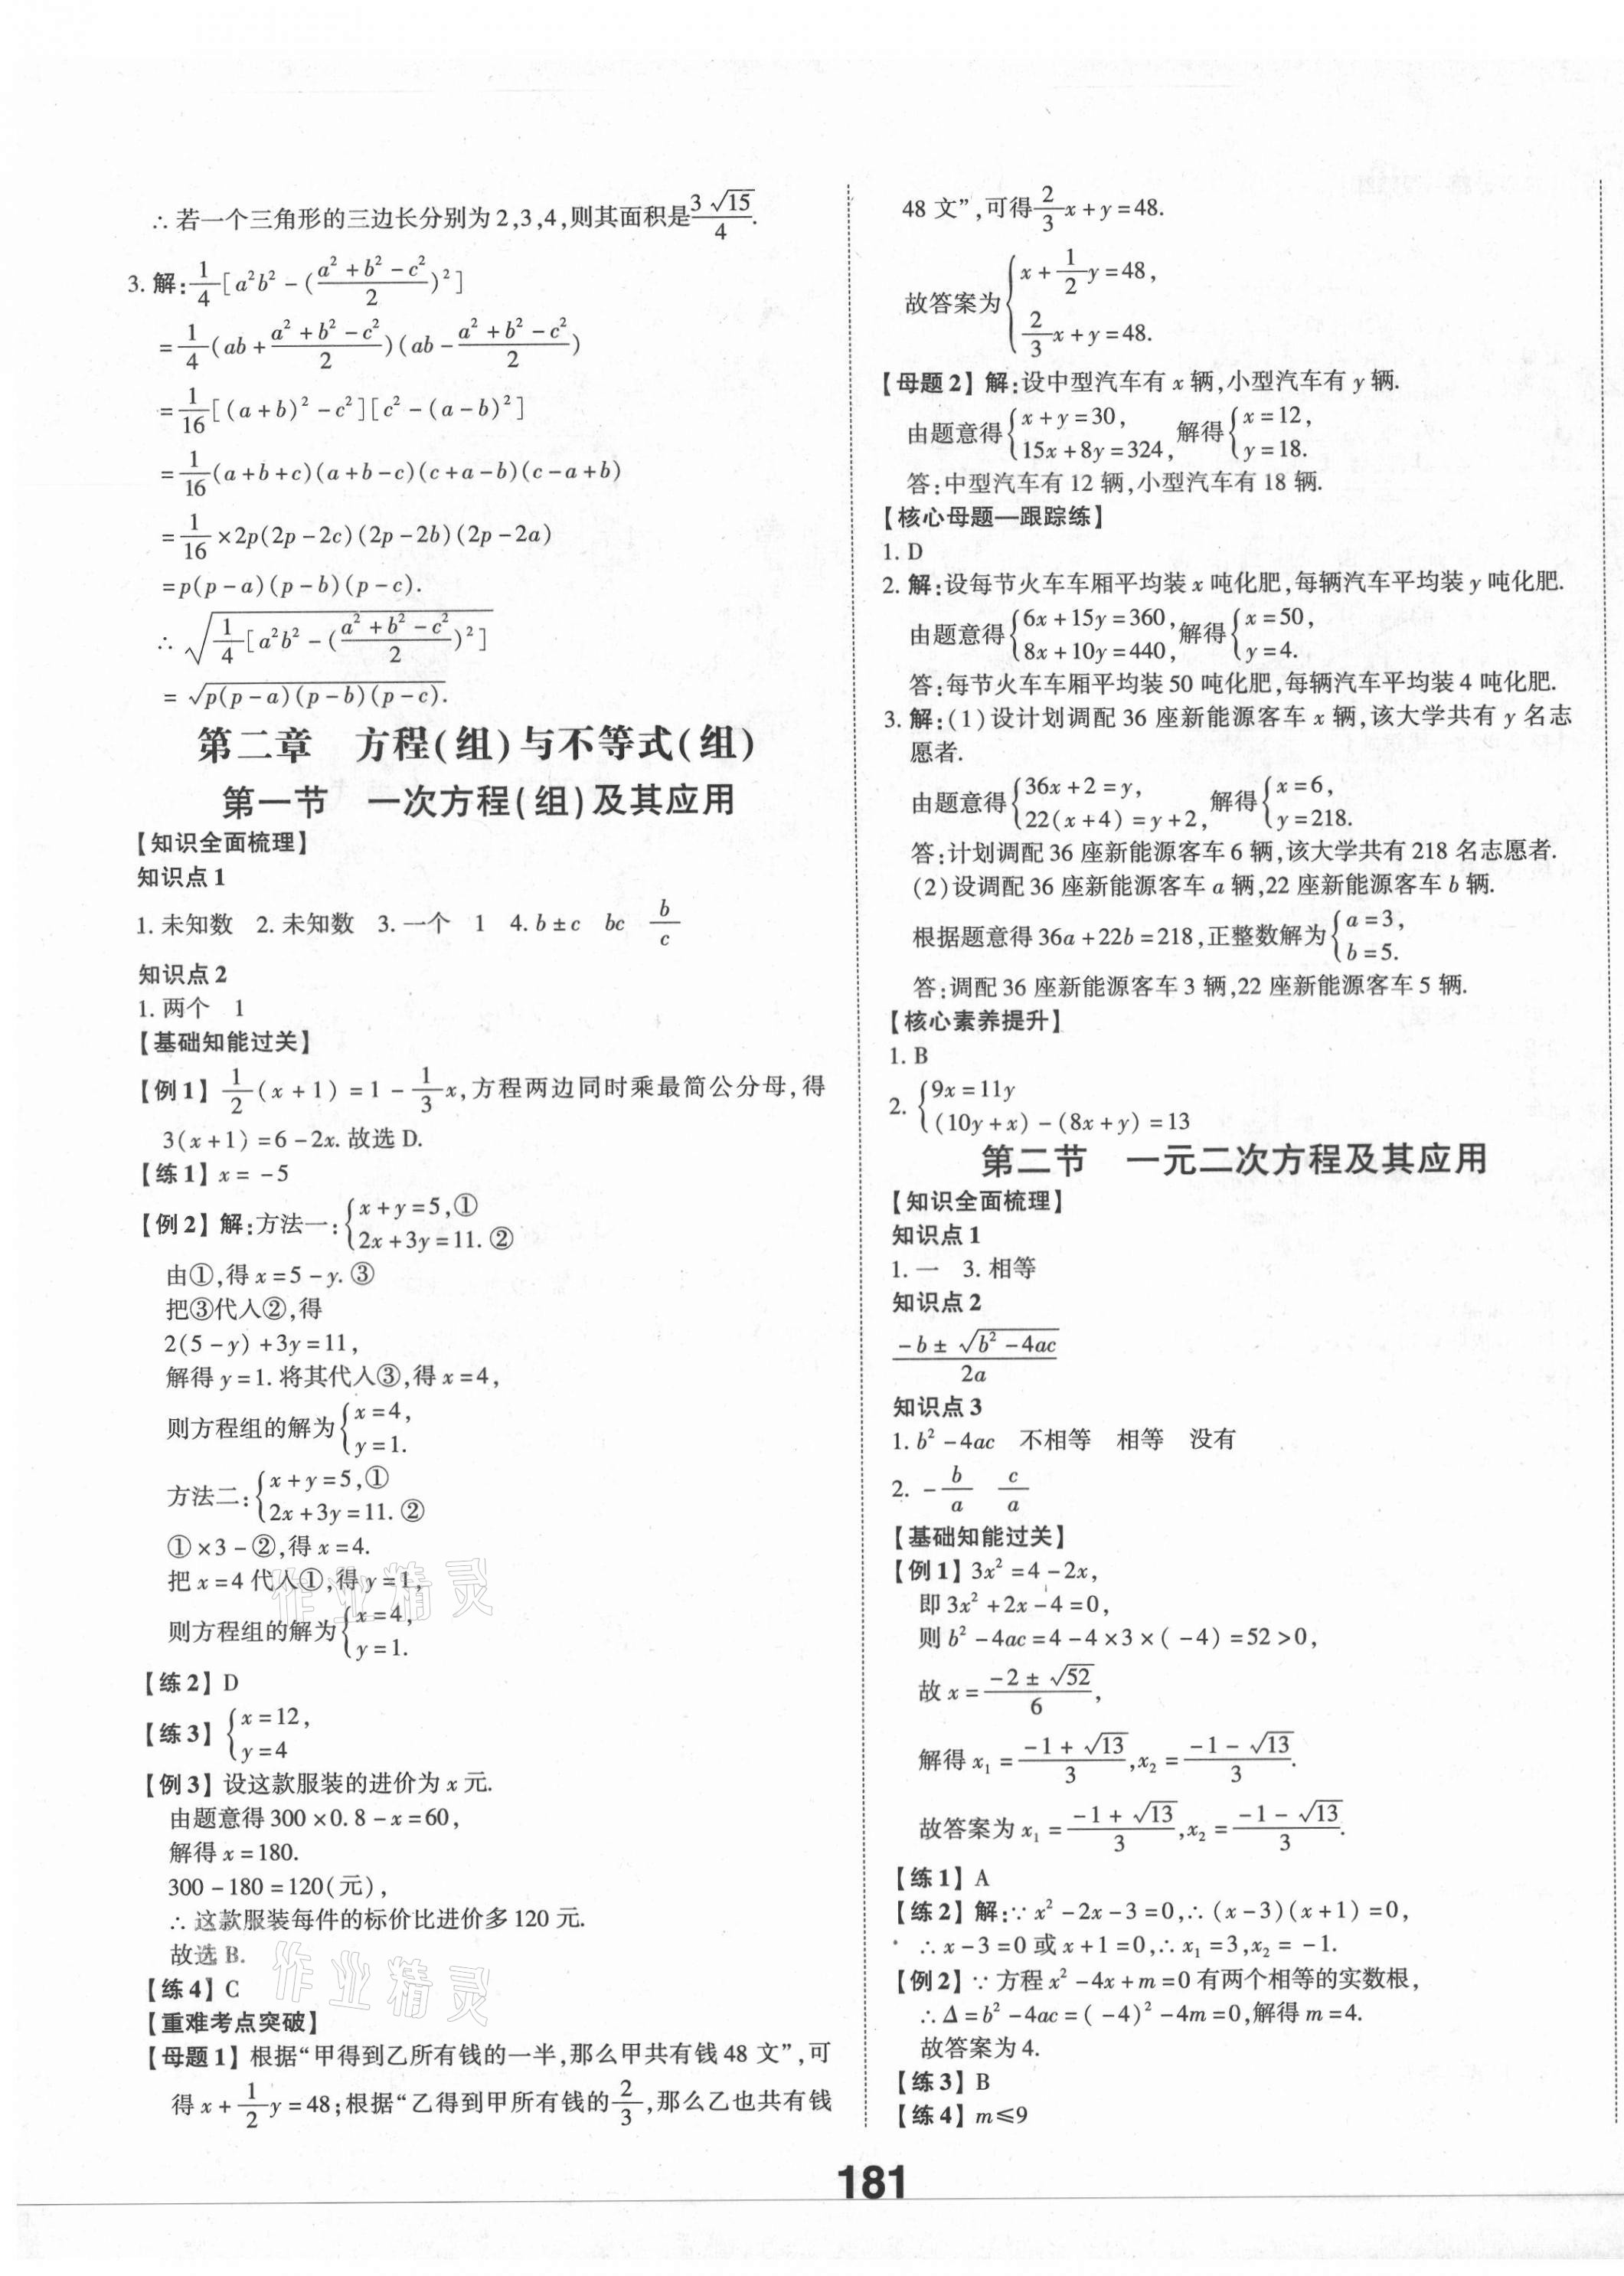 ∴ 若一个三角形的三边长分别为2,3,4,则其面积是$\frac{3\sqrt{15}}{4}$.
3. 解:$\frac{1}{4}[a^2b^2-(\frac{a^2+b^2-c^2}{2})^2]$
$=\frac{1}{4}(ab+\frac{a^2+b^2-c^2}{2})(ab-\frac{a^2+b^2-c^2}{2})$
$=\frac{1}{16}[(a+b)^2-c^2][c^2-(a-b)^2]$
$=\frac{1}{16}(a+b+c)(a+b-c)(c+a-b)(c-a+b)$
$=\frac{1}{16}×2p(2p-2c)(2p-2b)(2p-2a)$
$=p(p-a)(p-b)(p-c).$
∴ $\sqrt{\frac{1}{4}[a^2b^2-(\frac{a^2+b^2-c^2}{2})^2]}$
$=\sqrt{p(p-a)(p-b)(p-c)}.$
第二章 方程(组)与不等式(组)
第一节 一次方程(组)及其应用
【知识全面梳理】
知识点1
1. 未知数 2. 未知数 3. 一个 1 4. b±c bc $\frac{b}{c}$
知识点2
1. 两个 1
【基础知能过关】
【例1】$\frac{1}{2}(x+1)=1-\frac{1}{3}x$,方程两边同时乘最简公分母,得
3(x+1)=6-2x. 故选D.
【练1】x=-5
【例2】解:方法一:$\begin{cases}x+y=5,①\\2x+3y=11.②\end{cases}$
由①,得x=5-y. ③
把③代入②,得
2(5-y)+3y=11,
解得y=1. 将其代入③,得x=4,
则方程组的解为$\begin{cases}x=4,\\y=1.\end{cases}$
方法二:$\begin{cases}x+y=5,①\\2x+3y=11.②\end{cases}$
①×3-②,得x=4.
把x=4代入①,得y=1,
则方程组的解为$\begin{cases}x=4,\\y=1.\end{cases}$
【练2】D
【练3】$\begin{cases}x=12,\\y=4\end{cases}$
【例3】设这款服装的进价为x元.
由题意得300×0.8-x=60,
解得x=180.
300-180=120(元),
∴ 这款服装每件的标价比进价多120元.
故选B.
【练4】C
【重难考点突破】
【母题1】根据“甲得到乙所有钱的一半,那么甲共有钱48文”,可
得$x+\frac{1}{2}y=48$;根据“乙得到甲所有钱的$\frac{2}{3}$,那么乙也共有钱
48文”,可得$\frac{2}{3}x+y=48.$
故答案为$\begin{cases}x+\frac{1}{2}y=48,\\\frac{2}{3}x+y=48.\end{cases}$
【母题2】解:设中型汽车有x辆,小型汽车有y辆.
由题意得$\begin{cases}x+y=30,\\15x+8y=324,\end{cases}$解得$\begin{cases}x=12,\\y=18.\end{cases}$
答:中型汽车有12辆,小型汽车有18辆.
【核心母题—跟踪练】
1. D
2. 解:设每节火车车厢平均装x吨化肥,每辆汽车平均装y吨化肥.
由题意得$\begin{cases}6x+15y=360,\\8x+10y=440,\end{cases}$解得$\begin{cases}x=50,\\y=4.\end{cases}$
答:每节火车车厢平均装50吨化肥,每辆汽车平均装4吨化肥.
3. 解:(1)设计划调配36座新能源客车x辆,该大学共有y名志
愿者.
由题意得$\begin{cases}36x+2=y,\\22(x+4)=y+2,\end{cases}$解得$\begin{cases}x=6,\\y=218.\end{cases}$
答:计划调配36座新能源客车6辆,该大学共有218名志愿者.
(2)设调配36座新能源客车a辆,22座新能源客车b辆.
根据题意得36a+22b=218,正整数解为$\begin{cases}a=3,\\b=5.\end{cases}$
答:调配36座新能源客车3辆,22座新能源客车5辆.
【核心素养提升】
1. B
2. $\begin{cases}9x=11y\\(10y+x)-(8x+y)=13\end{cases}$
第二节 一元二次方程及其应用
【知识全面梳理】
知识点1
1. 一 3. 相等
知识点2
$\frac{-b±\sqrt{b^2-4ac}}{2a}$
知识点3
1. $b^2-4ac$ 不相等 相等 没有
2. $-\frac{b}{a}$ $\frac{c}{a}$
【基础知能过关】
【例1】$3x^2=4-2x,$
即$3x^2+2x-4=0,$
则$b^2-4ac=4-4×3×(-4)=52>0,$
故$x=\frac{-2±\sqrt{52}}{6},$
解得$x_1=\frac{-1+\sqrt{13}}{3},x_2=\frac{-1-\sqrt{13}}{3}.$
故答案为$x_1=\frac{-1+\sqrt{13}}{3},x_2=\frac{-1-\sqrt{13}}{3}.$
【练1】A
【练2】解:∵ $x^2-2x-3=0$,∴ $(x-3)(x+1)=0,$
∴ x-3=0或x+1=0,∴ $x_1=3,x_2=-1.$
【例2】∵ 方程$x^2-4x+m=0$有两个相等的实数根,
∴ $Δ=b^2-4ac=(-4)^2-4m=0$,解得m=4.
故答案为4.
【练3】B
【练4】m≤9
181
作业精灵
作业精灵